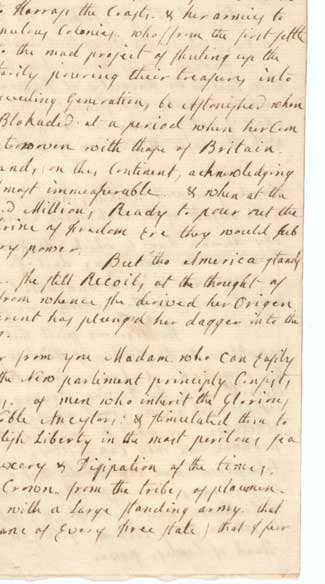 to Harrass the Coasts. & her armies to
populous Colonies. who, from the first settle
to the mad project of shuting up the
tarily pouring their treasures into
succeeding Generations, be Astonished when
Blokaded at a period when her Com
terwoven with those of Britain.
ands, on this Continent, acknowledging
most immeasurable & when at tha
d Million, Ready to pour out the
rine of freedom Ere they would sub
ry power.
But tho America stands
she still Recoils, at the thought of
from whence she derived her Origen
erent has plung'd her dagger into the
r from you Madam who can Easily
the New parliment principly Consists,
s. of men who inherit the Glorious
oble Ancestors: & stimulated them to
lish Liberty in the most perilous sea
uxery & Disipation of the times,
Crown from the tribes, of placemen.
with a Large standing army. that
ane of Every free state; that I fear